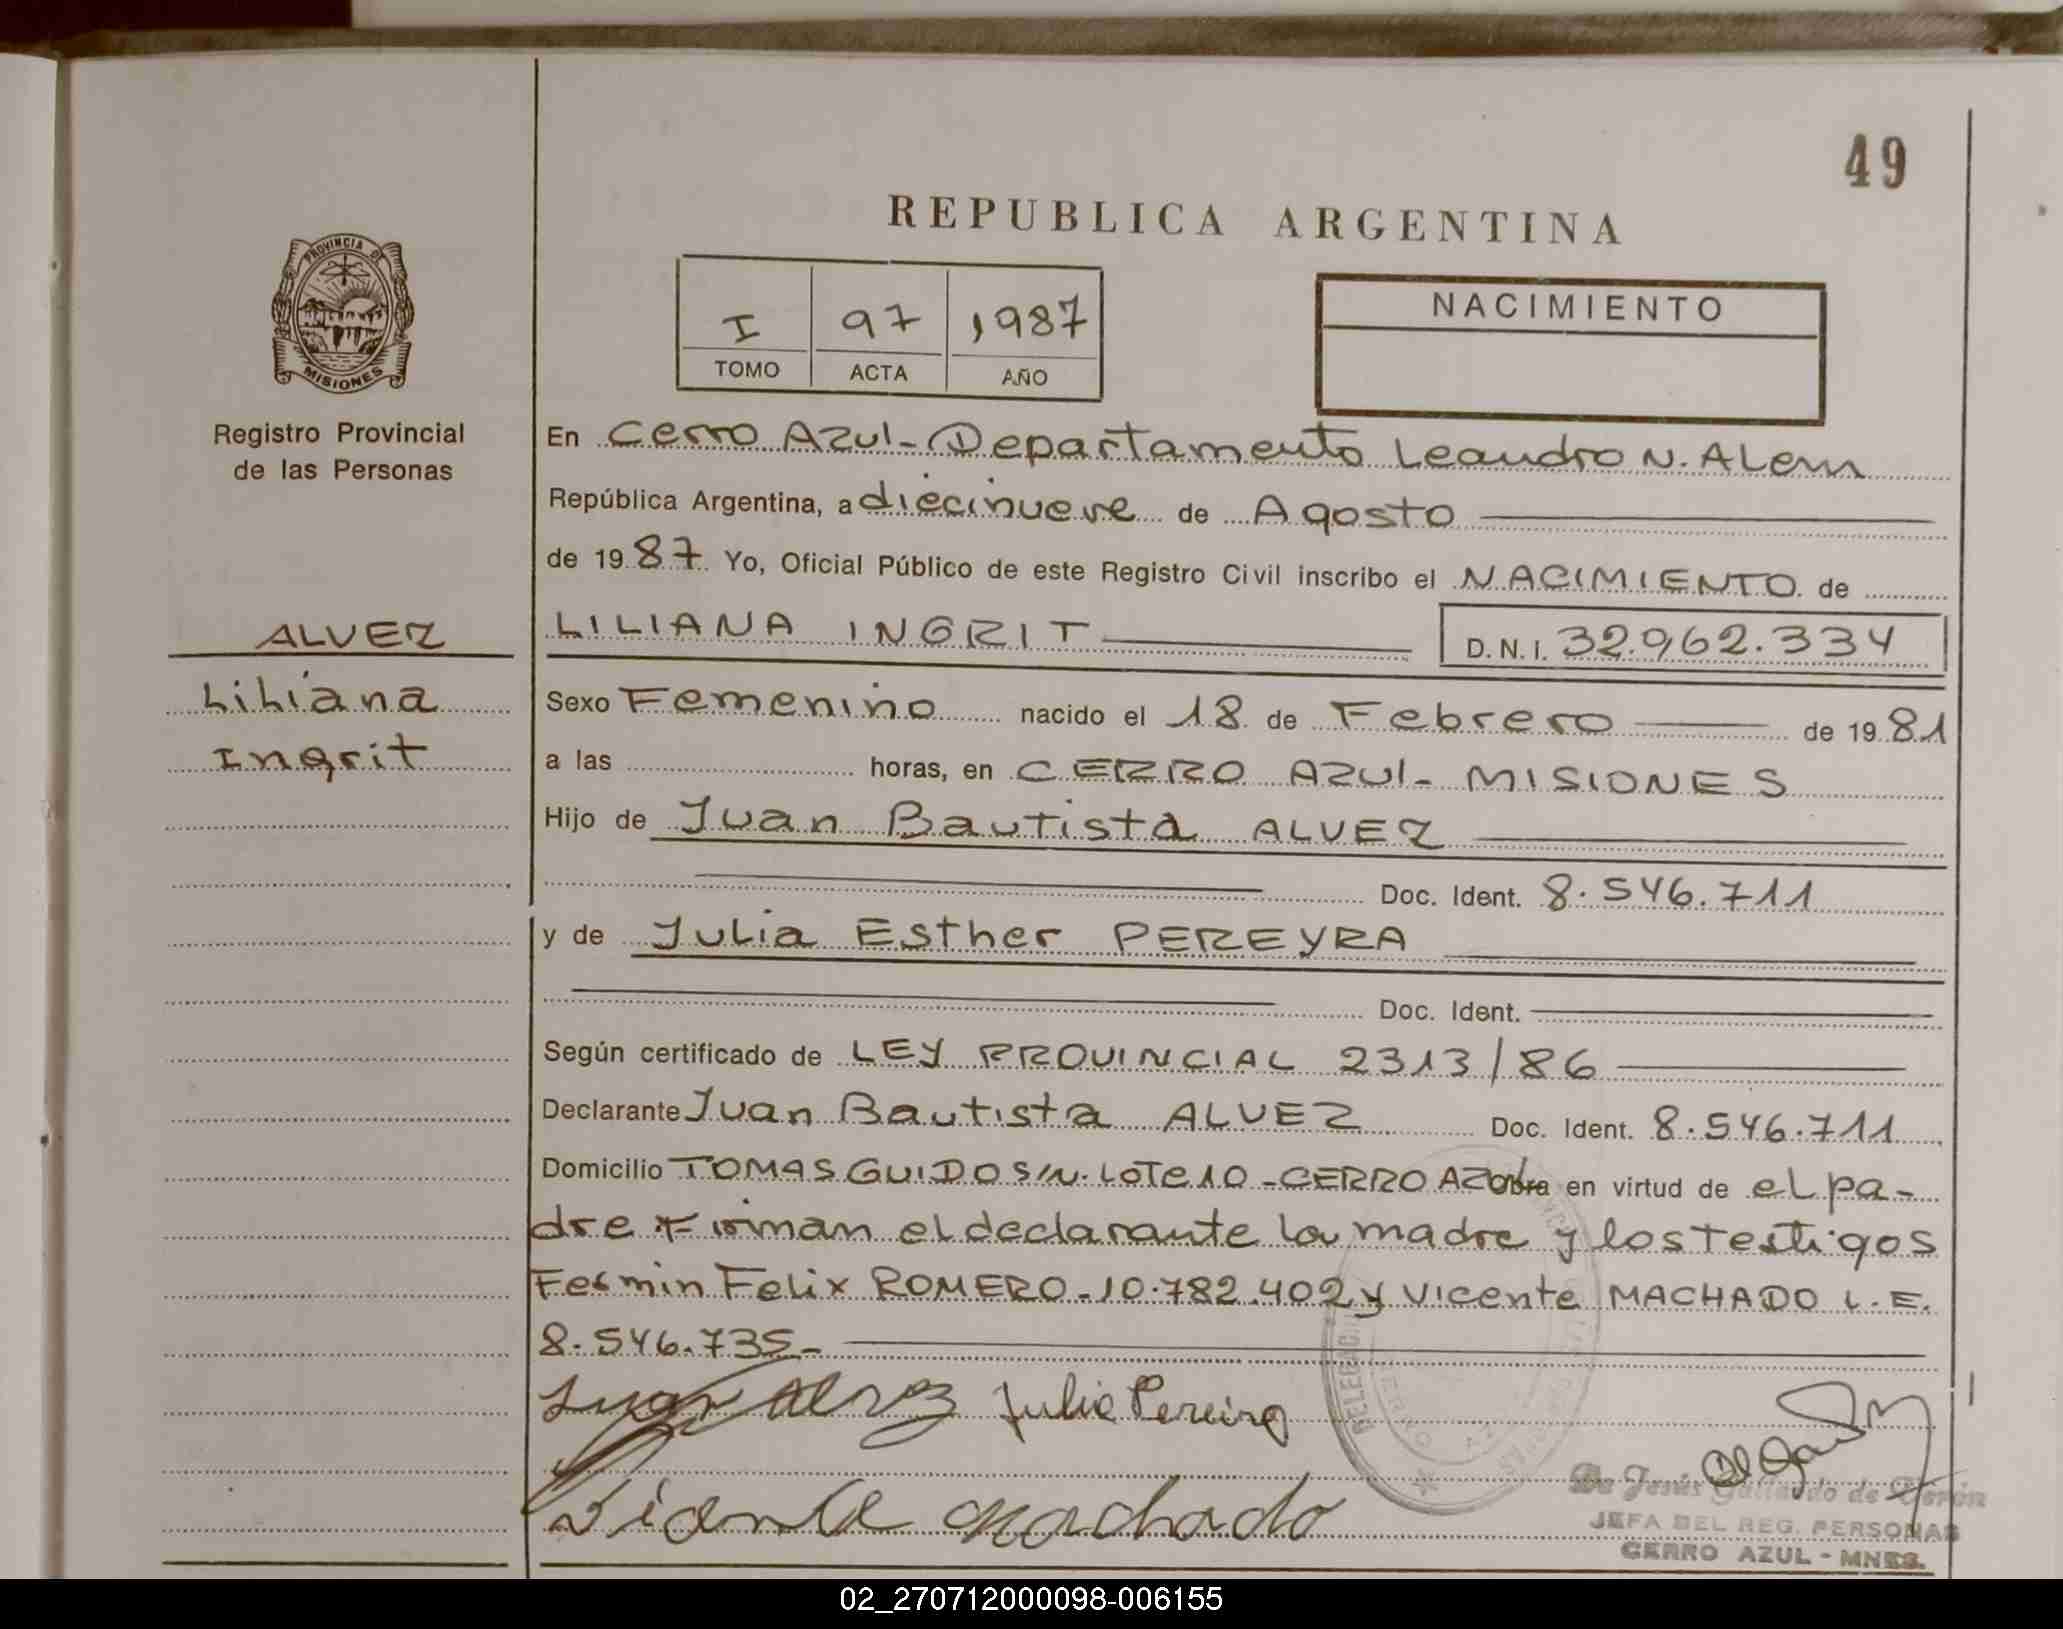 49
REPUBLICA ARGENTINA
PROVINCIA DE
MISIONES
Registro Provincial
de las Personas
I 97 1987
TOMO ACTA AÑO
NACIMIENTO
En Cerro Azul - Departamento Leandro N. Alem
República Argentina, a diecinueve de Agosto
de 1987 Yo, Oficial Público de este Registro Civil inscribo el NACIMIENTO de
ALVEZ
Liliana
Ingrit
LILIANA INGRIT D.N.I. 32.962.334
Sexo Femenino nacido el 18 de Febrero de 1981
a las horas, en CERRO AZUL - MISIONES
Hijo de Juan Bautista ALVEZ
Doc. Ident. 8.546.711
y de Julia Esther PEREYRA
Doc. Ident.
Según certificado de LEY PROVINCIAL 2313/86
Declarante Juan Bautista ALVEZ Doc. Ident. 8.546.711
Domicilio TOMAS GUIDO S/N. LOTE 10 - CERRO AZUL obra en virtud de el pa-
dre Firman el declarante la madre y los testigos
Fermin Felix ROMERO - 10.782.402 y Vicente MACHADO L.E.
8.546.735 -
Juan Alvez Julia Pereira
Machado
DELEGACION
CERRO AZUL
De Jesús Gallardo de Terón
JEFA DEL REG. PERSONAS
CERRO AZUL - MNES.
02_270712000098-006155